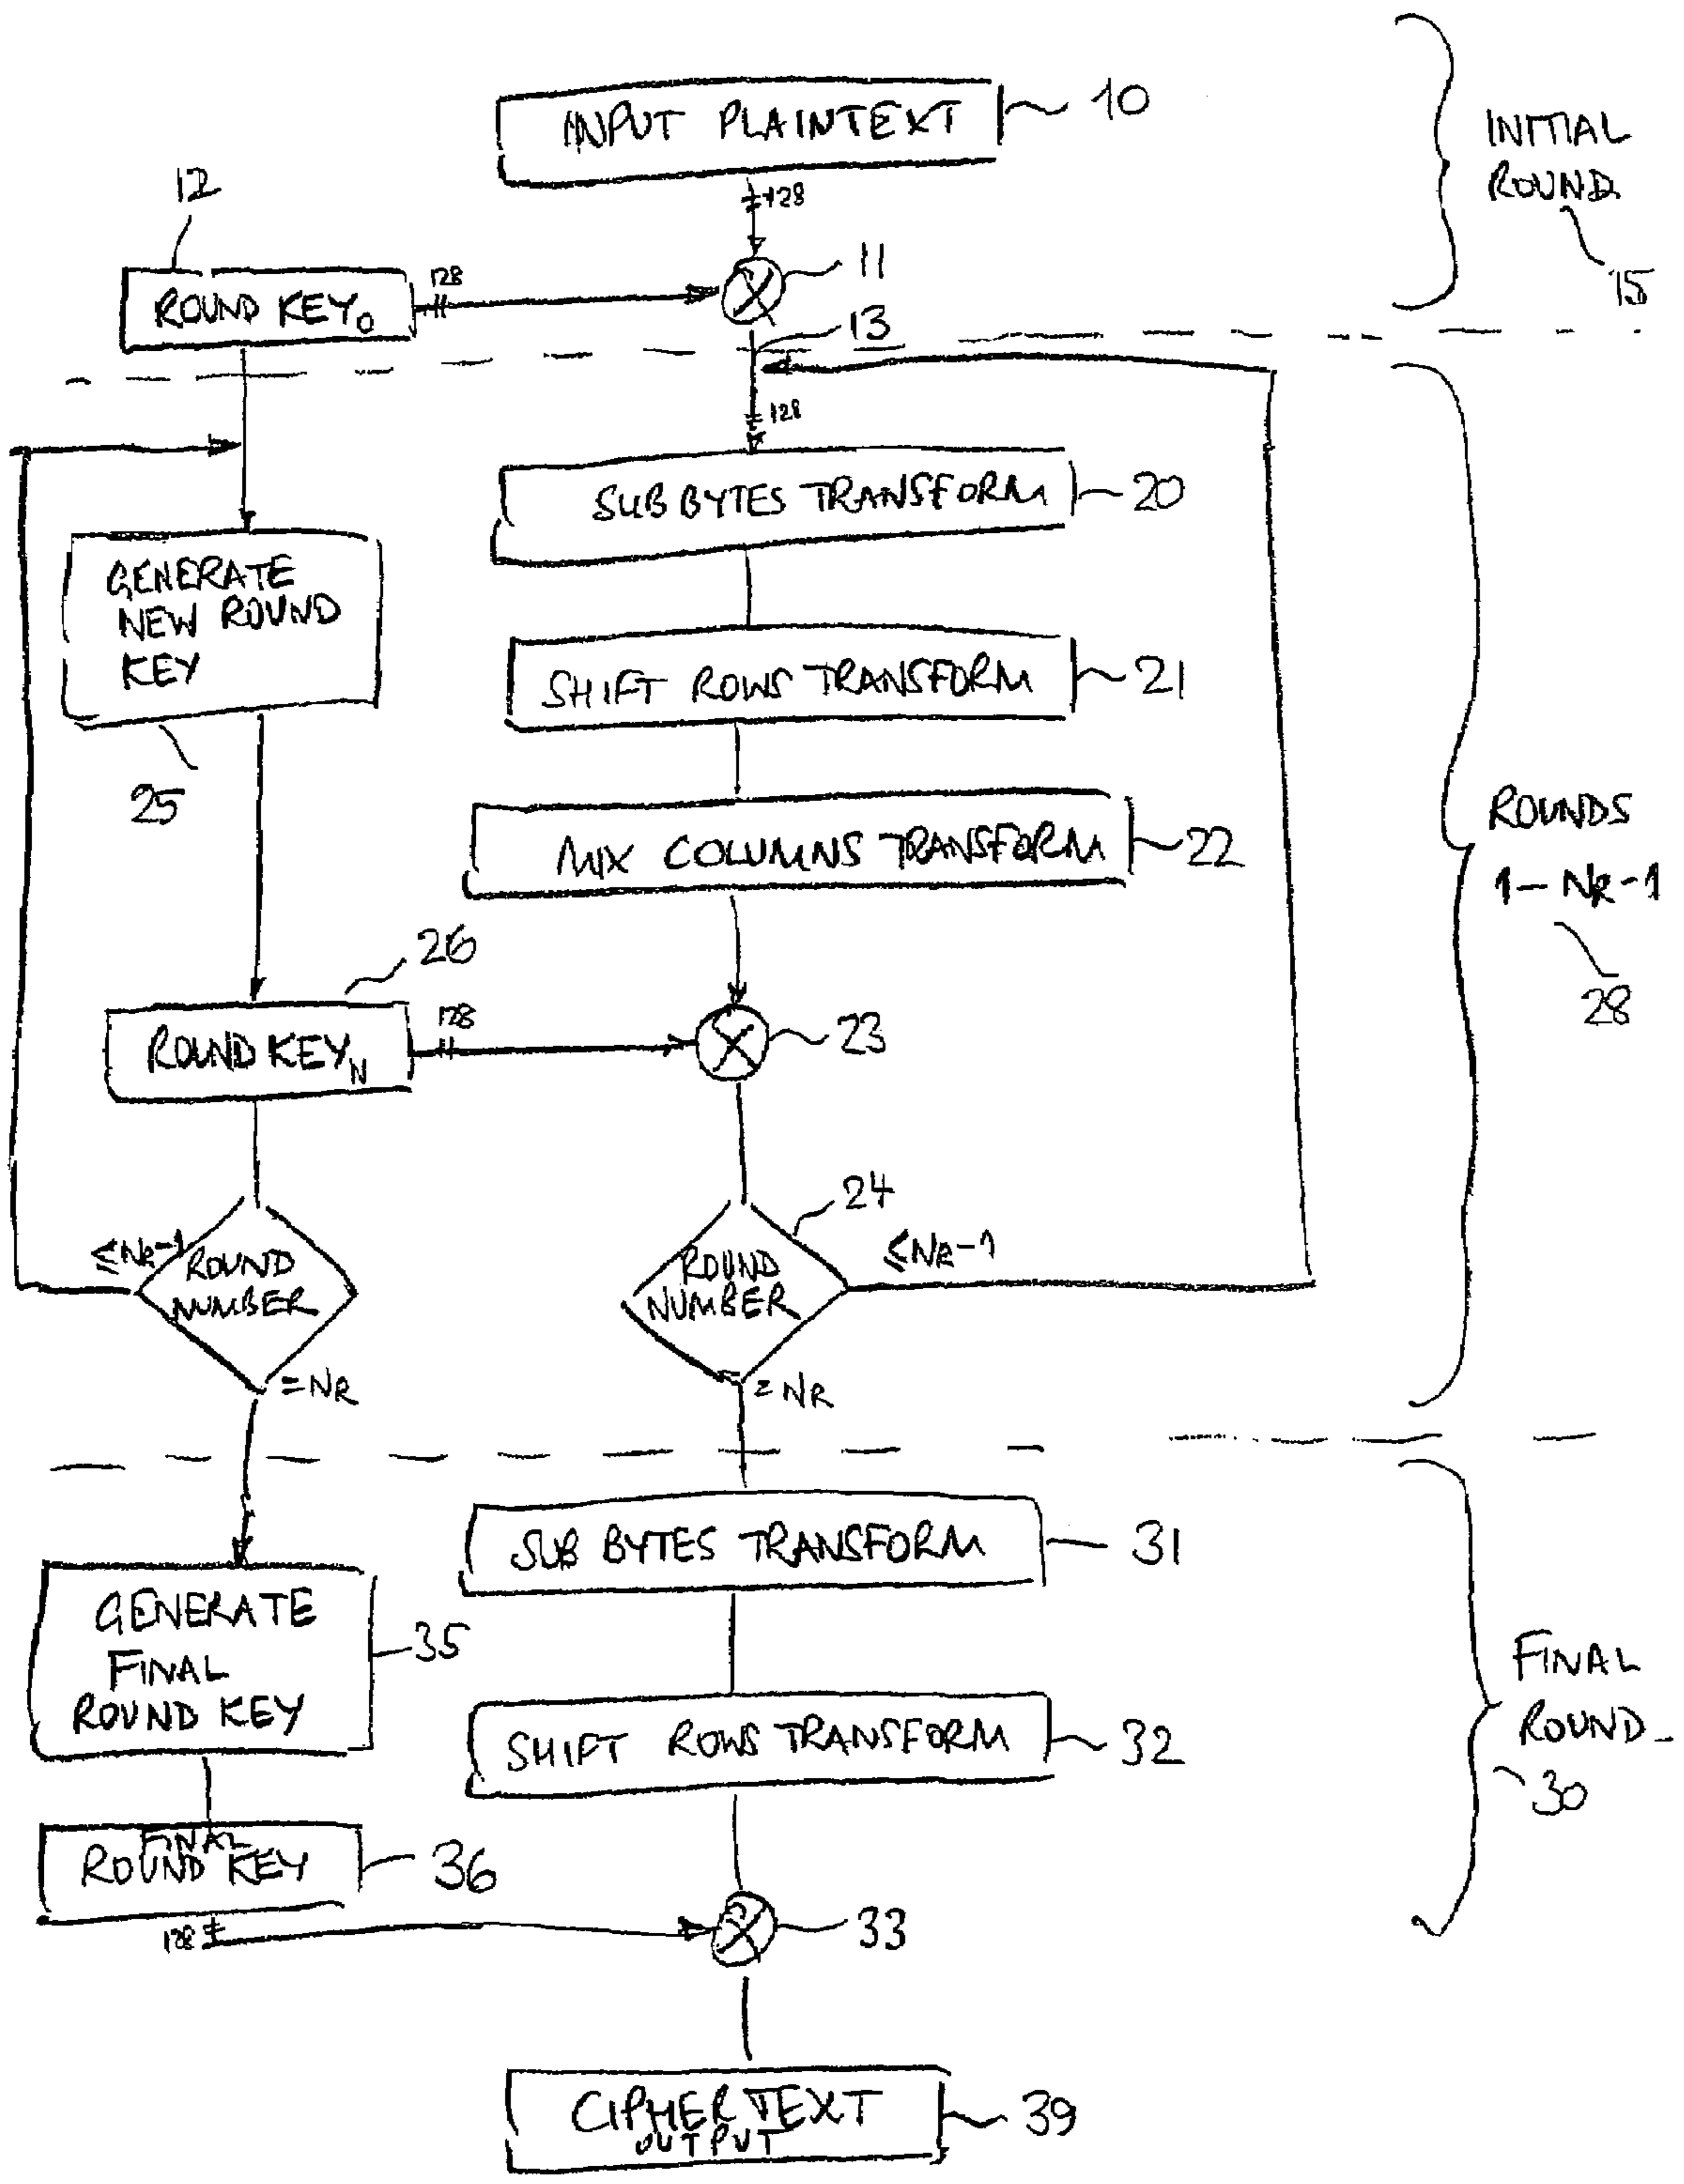 INPUT PLAINTEXT
10
INITIAL
ROUND
15
12
128
11
ROUND KEY0
128
13
128
SUB BYTES TRANSFORM
20
GENERATE
NEW ROUND
KEY
25
SHIFT ROWS TRANSFORM
21
MIX COLUMNS TRANSFORM
22
ROUNDS
1-NR-1
28
26
ROUND KEYN
128
23
24
≤NR-1
ROUND
NUMBER
=NR
ROUND
NUMBER
≤NR-1
=NR
SUB BYTES TRANSFORM
31
GENERATE
FINAL
ROUND KEY
35
SHIFT ROWS TRANSFORM
32
FINAL
ROUND
30
FINAL
ROUND KEY
36
128
33
CIPHER TEXT
OUTPUT
39